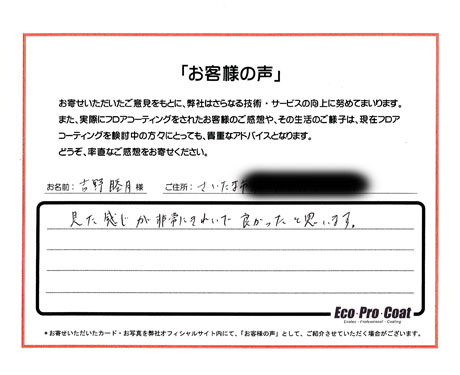 「お客様の声」
お寄せいただいたご意見をもとに、弊社はさらなる技術・サービスの向上に努めてまいります。
また、実際にフロアコーティングをされたお客様のご感想や、その生活のご様子は、現在フロア
コーティングを検討中の方々にとっても、貴重なアドバイスとなります。
どうぞ、率直なご感想をお寄せください。
お名前：吉野 様 ご住所：さいたま市
見た感じが非常にきれいで良かったと思います。
Eco-Pro-Coat
Ecolex - Professional - Coating
＊お寄せいただいたカード・お写真を弊社オフィシャルサイト内にて、「お客様の声」として、ご紹介させていただく場合がございます。